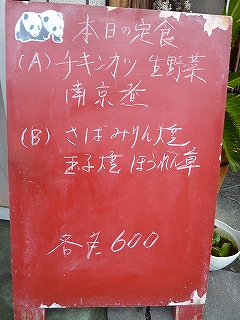 本日の定食
(A) チキンカツ、生野菜
南京煮
(B) さばみりん焼
玉子焼 ほうれん草
各 ¥600